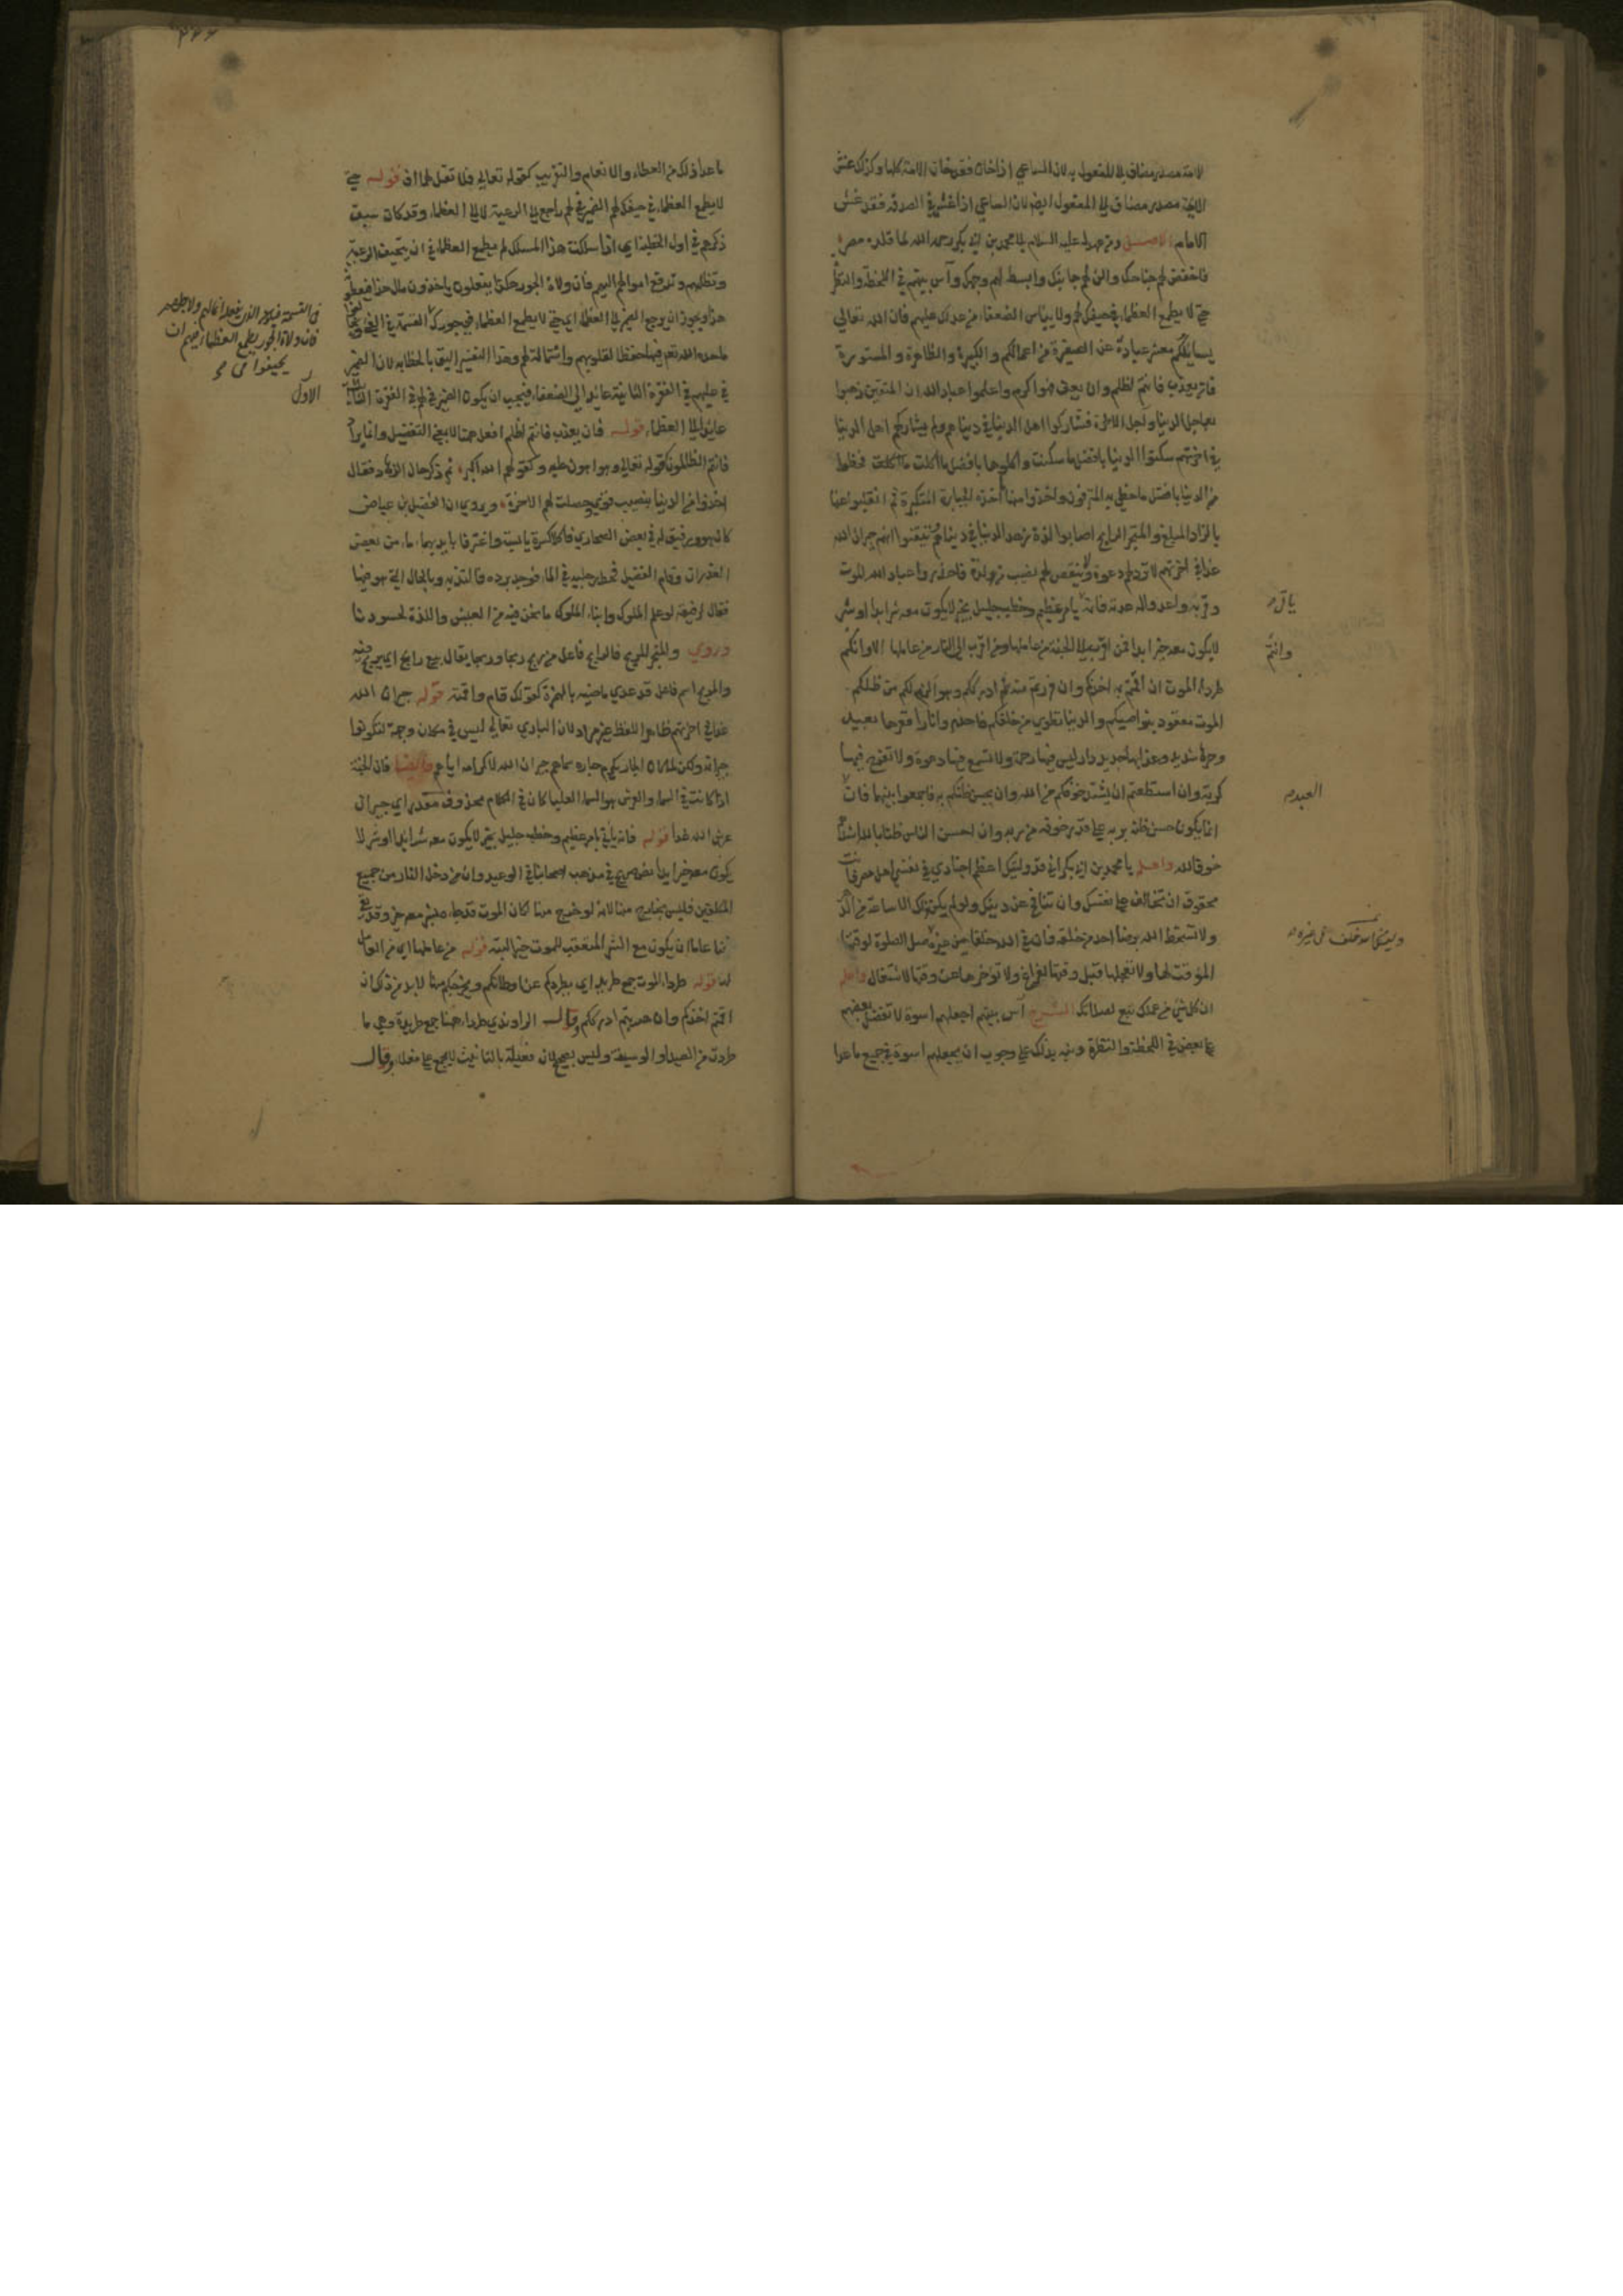 الامة مصدر مضاف الى المفعول به لان الساعي اذا خان فقد خان الامة كلها وكذلك غش
الائمة مصدر مضاف الى المفعول ايضا لان الساعي اذا غش في الصدقة فقد غش
الامام الاصل ومن عهد له عليه السلام الى محمد بن ابي بكر رحمه الله لما قلده مصر
فاخفض لهم جناحك والن لهم جانبك وابسط لهم وجهك وآس بينهم في اللحظة والنظرة
حتى لا يطمع العظماء في حيفك لهم ولا ييأس الضعفاء من عدلك عليهم فان الله تعالى
يسايلكم معشر عباده عن الصغيرة من اعمالكم والكبيرة والظاهرة والمستورة
فان يعذب فانتم اظلم وان يعف فهو اكرم واعلموا عباد الله ان المتقين ذهبوا
بعاجل الدنيا وآجل الآخرة فشاركوا اهل الدنيا في دنياهم ولم يشاركهم اهل الدنيا
في اخرتهم سكنوا الدنيا بافضل ما سكنت واكلوها بافضل ما اكلت فحظوا
من الدنيا بافضل ما حظي به المترفون واخذوا منها ما اخذه الجبابرة المتكبرة ثم انقلبوا عنها
بالزاد المبلغ والمتجر الرابح اصابوا لذة زهد الدنيا في دنياهم وتيقنوا انهم جيران الله
غدا في اخرتهم لا ترد لهم دعوة ولا ينقص لهم نصيب من لذة فاحذروا عباد الله الموت
وقربه واعدوا له عدته فانه ياتي بامر عظيم وخطب جليل بخير لا يكون معه شر ابدا او شر
لا يكون معه خير ابدا فمن اقرب الى الجنة من عاملها ومن اقرب الى النار من عاملها الا وانكم
طرداء الموت ان اقمتم له اخذكم وان فررتم منه ادرككم وهو الزم لكم من ظلكم
الموت معقود بنواصيكم والدنيا تطوى من خلفكم فاحذروا نارا قعرها بعيد
وحرها شديد وعذابها جديد دار ليس فيها رحمة ولا تسمع فيها دعوة ولا تفرج فيها
كربة وان استطعتم ان يشتد خوفكم من الله وان يحسن ظنكم به فاجمعوا بينهما فان
انما يكون حسن ظنه بربه على قدر خوفه من ربه وان احسن الناس ظنا بالله اشدهم
خوفا لله واعلم يا محمد بن ابي بكر اني قد وليتك اعظم اجنادي في نفسي اهل مصر فانت
محقوق ان تخالف على نفسك وان تنافح عن دينك ولو لم يكن لك الا ساعة من الدهر
ولا تسخط الله برضا احد من خلقه فان في الله خلفا من غيره صل الصلوة لوقتها
المؤقت لها ولا تعجل وقتها لفراغ ولا تؤخرها عن وقتها لاشتغال واعلم
ان كل شيء من عملك تبع لصلاتك الشرح آس بينهم اجعلهم اسوة لا تفضل بعضهم
على بعض في اللحظة والنظرة ونبه بذلك على وجوب ان يجعلهم اسوة في جميع ما عدا
وانتم
ما عدا ذلك من العطاء والانعام والتقريب كقوله تعالى فلا تقل لهما اف قوله حتى
لا يطمع العظماء في حيفك لهم الضمير في لهم راجع الى الرعية لا الى العظماء وقد كان سبق
ذكرهم في اول الخطبة اي اذا سلكت هذا المسلك لم يطمع العظماء في ان تحيف الرعية
وتظلمهم وتدفع اموالهم اليهم فان ولاة الجور هكذا يفعلون ياخذون مال هذا فيعطونه
هذا ويجوز ان يرجع الضمير الى العظماء اي حتى لا يطمع العظماء في جورك في القسمة
ما حده الله تعالى فيها حفظا لقلوبهم واستمالة لهم وهذا التفسير اليق بالخطابة لان الضمير
في عليهم في الفقرة الثانية عائد الى الضعفاء فيجب ان يكون الضمير في لهم في الفقرة
عائدا الى العظماء قوله فان يعذب فانتم اظلم افعل هنا لا بمعنى التفضيل وانما يراد
فانتم الظالمون كقوله تعالى وهو اهون عليه وكقولهم الله اكبر ثم ذكر حال الزهاد فقال
اخذوا من الدنيا بنصيب قوي وحصلت لهم الاخرة ويروى ان الفضيل بن عياض
كان هو ورفيق له في بعض الصحاري فاكلا كسرة يابسة واغترفا بايديهما ماء من بعض
الغدران وقام الفضيل فحط رجليه في الماء فوجد برده فالتذ به وبالحال التي هو فيها
فقال لرفيقه لو علم الملوك وابناء الملوك ما نحن فيه من العيش واللذة لحسدونا
وروي والمتجر المربح فالرابح فاعل من ربح ربحا يقال بيع رابح اي يربح فيه
والمربح اسم فاعل قد عدي ماضيه بالهمزة كقولك قام واقمته قوله جيران الله
غدا في اخرتهم ظاهر اللفظ غير مراد لان الباري تعالى ليس في مكان وجهة ليكونوا
جيرانه ولكن لما كان الجار يكرم جاره سماهم جيران الله لاكرامه اياهم وايضا فان الجنة
اذا كانت في السماء والعرش هو السماء العليا كان في الكلام محذوف مقدر اي جيران
عرش الله غدا قوله فانه ياتي بامر عظيم وخطب جليل بخير لا يكون معه شر ابدا او شر لا
يكون معه خير ابدا نص صريح في مذهب اصحابنا في الوعيد وان من دخل النار من جميع
المكلفين فليس بخارج منها لانه لو خرج منها لكان الموت قد جاءه بشر معه خير وقد نفى
نفيا عاما ان يكون مع الشر المتعقب للموت خير البتة قوله من عاملها اي من العامل
لها قوله طرداء الموت جمع طريد اي يطردكم عن اوطانكم ويخرجكم منها لا بد من ذلك ان
اقمتم اخذكم وان هربتم ادرككم وقال الراوندي طرداء هنا جمع طريدة وهي ما
طردت من الصيد او الوسيقة وليس بصحيح لان فعيلة بالتانيث لا يجمع على فعلاء وقال
فان ولاة الجور يطمع العظماء
الاول